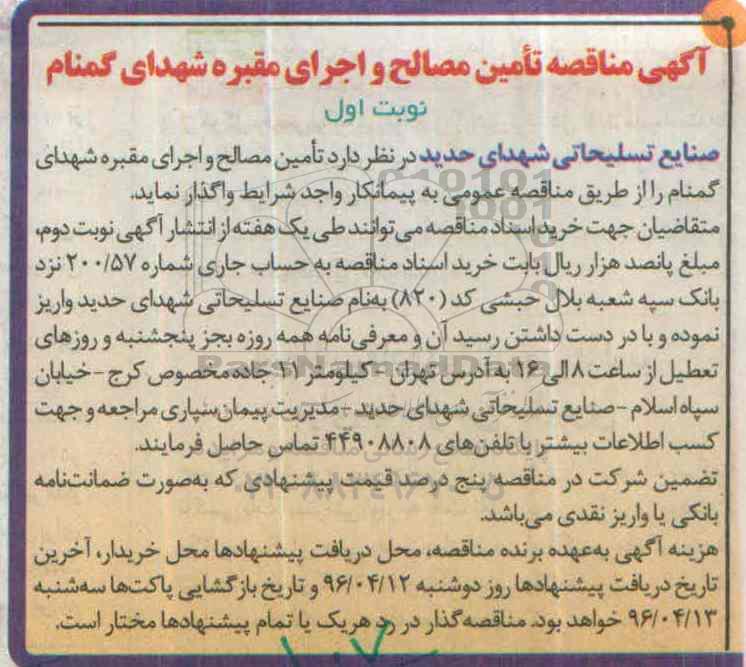 آگهی مناقصه تأمین مصالح و اجرای مقبره شهدای گمنام
نوبت اول
صنایع تسلیحاتی شهدای حدید در نظر دارد تأمین مصالح و اجرای مقبره شهدای
گمنام را از طریق مناقصه عمومی به پیمانکار واجد شرایط واگذار نماید.
متقاضیان جهت خرید اسناد مناقصه می‌توانند طی یک هفته از انتشار آگهی نوبت دوم،
مبلغ پانصد هزار ریال بابت خرید اسناد مناقصه به حساب جاری شماره ۲۰۰/۵۷ نزد
بانک سپه شعبه بلال حبشی کد (۸۲۰) به‌نام صنایع تسلیحاتی شهدای حدید واریز
نموده و با در دست داشتن رسید آن و معرفی‌نامه همه روزه بجز پنجشنبه و روزهای
تعطیل از ساعت ۸ الی ۱۶ به آدرس تهران - کیلومتر ۱۱ جاده مخصوص کرج - خیابان
سپاه اسلام - صنایع تسلیحاتی شهدای حدید - مدیریت پیمان‌سپاری مراجعه و جهت
کسب اطلاعات بیشتر با تلفن‌های ۴۴۹۰۸۸۰۸ تماس حاصل فرمایند.
تضمین شرکت در مناقصه پنج درصد قیمت پیشنهادی که به‌صورت ضمانت‌نامه
بانکی یا واریز نقدی می‌باشد.
هزینه آگهی به‌عهده برنده مناقصه، محل دریافت پیشنهادها محل خریدار، آخرین
تاریخ دریافت پیشنهادها روز دوشنبه ۹۶/۰۴/۱۲ و تاریخ بازگشایی پاکت‌ها سه‌شنبه
۹۶/۰۴/۱۳ خواهد بود. مناقصه‌گذار در رد هریک یا تمام پیشنهادها مختار است.
ParsNamadData